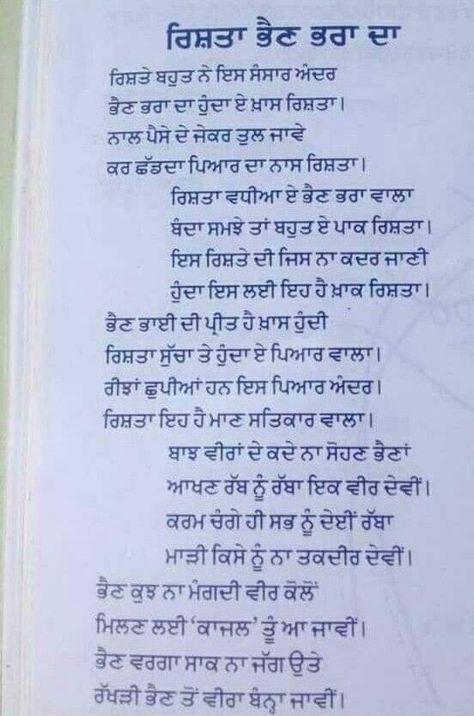 ਰਿਸ਼ਤਾ ਭੈਣ ਭਰਾ ਦਾ
ਰਿਸ਼ਤੇ ਬਹੁਤ ਨੇ ਇਸ ਸੰਸਾਰ ਅੰਦਰ
ਭੈਣ ਭਰਾ ਦਾ ਹੁੰਦਾ ਏ ਖ਼ਾਸ ਰਿਸ਼ਤਾ।
ਨਾਲ ਪੈਸੇ ਦੇ ਜੇਕਰ ਤੁਲ ਜਾਵੇ
ਕਰ ਛੱਡਦਾ ਪਿਆਰ ਦਾ ਨਾਸ ਰਿਸ਼ਤਾ।
ਰਿਸ਼ਤਾ ਵਧੀਆ ਏ ਭੈਣ ਭਰਾ ਵਾਲਾ
ਬੰਦਾ ਸਮਝੇ ਤਾਂ ਬਹੁਤ ਏ ਪਾਕ ਰਿਸ਼ਤਾ।
ਇਸ ਰਿਸ਼ਤੇ ਦੀ ਜਿਸ ਨਾ ਕਦਰ ਜਾਣੀ
ਹੁੰਦਾ ਇਸ ਲਈ ਇਹ ਹੈ ਖ਼ਾਕ ਰਿਸ਼ਤਾ।
ਭੈਣ ਭਾਈ ਦੀ ਪ੍ਰੀਤ ਹੈ ਖ਼ਾਸ ਹੁੰਦੀ
ਰਿਸ਼ਤਾ ਸੁੱਚਾ ਤੇ ਹੁੰਦਾ ਏ ਪਿਆਰ ਵਾਲਾ।
ਰੀਝਾਂ ਛੁਪੀਆਂ ਹਨ ਇਸ ਪਿਆਰ ਅੰਦਰ।
ਰਿਸ਼ਤਾ ਇਹ ਹੈ ਮਾਣ ਸਤਿਕਾਰ ਵਾਲਾ।
ਬਾਝ ਵੀਰਾਂ ਦੇ ਕਦੇ ਨਾ ਸੋਹਣ ਭੈਣਾਂ
ਆਖਣ ਰੱਬ ਨੂੰ ਰੱਬਾ ਇਕ ਵੀਰ ਦੇਵੀਂ।
ਕਰਮ ਚੰਗੇ ਹੀ ਸਭ ਨੂੰ ਦੇਈਂ ਰੱਬਾ
ਮਾੜੀ ਕਿਸੇ ਨੂੰ ਨਾ ਤਕਦੀਰ ਦੇਵੀਂ।
ਭੈਣ ਕੁਝ ਨਾ ਮੰਗਦੀ ਵੀਰ ਕੋਲੋਂ
ਮਿਲਣ ਲਈ 'ਕਾਜਲ' ਤੂੰ ਆ ਜਾਵੀਂ।
ਭੈਣ ਵਰਗਾ ਸਾਕ ਨਾ ਜੱਗ ਉਤੇ
ਰੱਖੜੀ ਭੈਣ ਤੋਂ ਵੀਰਾ ਬੰਨ੍ਹਾ ਜਾਵੀਂ।